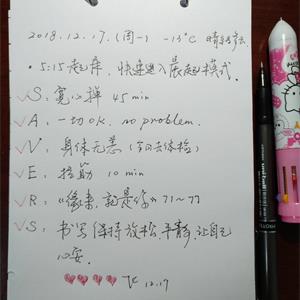 2018.12.17.(周一) -13°C 晴
• 5:15起床, 快速进入晨起模式.
S: 宽心禅 45 min
A: 一切OK. no problem.
V: 身体无恙 (今日去体检)
E: 拾筋 10 min
R: 《像书, 就是你》 71~77
S: 书写保持放松平静, 让自己
心安.
12.17